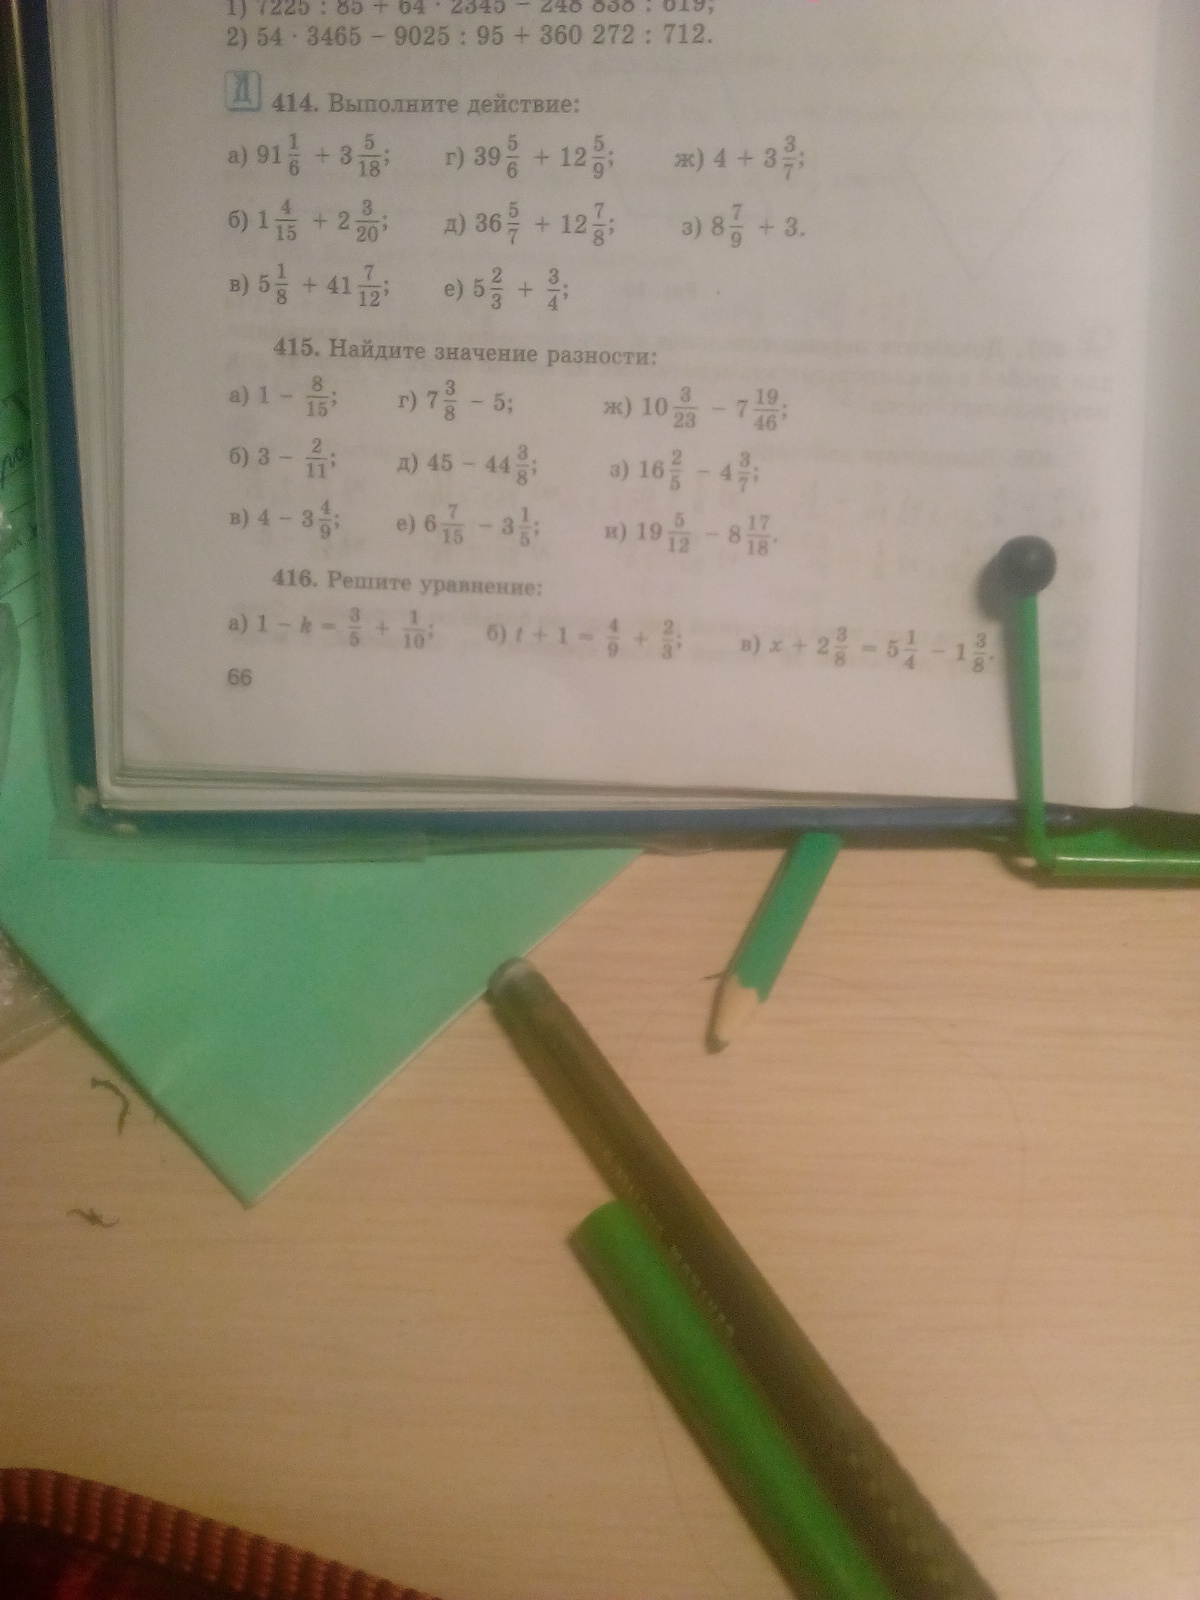 1) 7225 : 85 + 64 · 2345 − 248 838 : 619;
2) 54 · 3465 − 9025 : 95 + 360 272 : 712.
Д 414. Выполните действие:
а) 91 1/6 + 3 5/18; г) 39 5/6 + 12 5/9; ж) 4 + 3 3/7;
б) 1 4/15 + 2 3/20; д) 36 5/7 + 12 7/8; з) 8 7/9 + 3.
в) 5 1/8 + 41 7/12; е) 5 2/3 + 3/4;
415. Найдите значение разности:
а) 1 − 8/15; г) 7 3/8 − 5; ж) 10 3/23 − 7 19/46;
б) 3 − 2/11; д) 45 − 44 3/8; з) 16 2/5 − 4 3/7;
в) 4 − 3 4/9; е) 6 7/15 − 3 1/5; и) 19 5/12 − 8 17/18.
416. Решите уравнение:
а) 1 − k = 3/5 + 1/10; б) t + 1 = 4/9 + 2/3; в) x + 2 3/8 = 5 1/4 − 1 3/8.
66